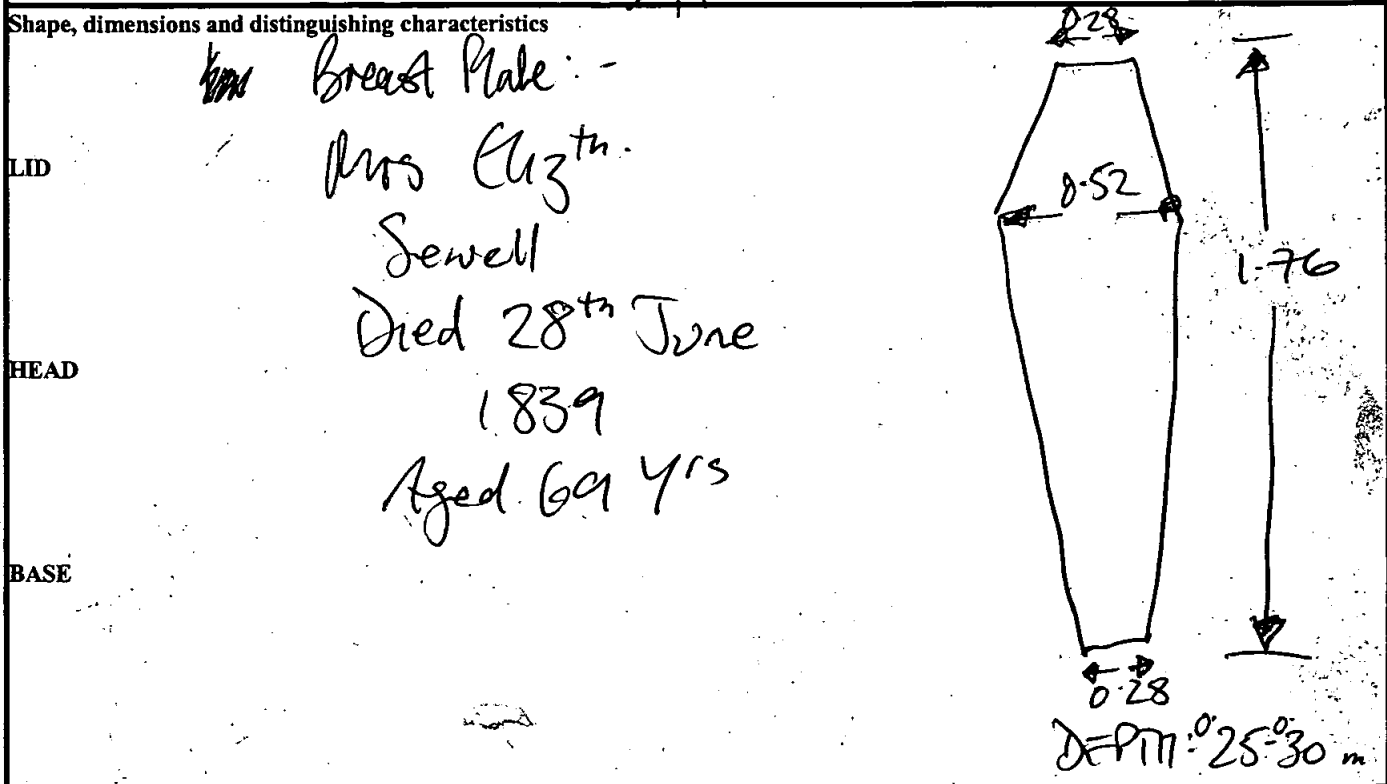 Shape, dimensions and distinguishing characteristics
Breast Plate:-
LID
Mrs Elizth.
Sewell
Died 28th June
HEAD
1839
Aged 69 yrs
BASE
0.28
0.52
1.76
0.28
DEPTH: 0.25-0.30 m